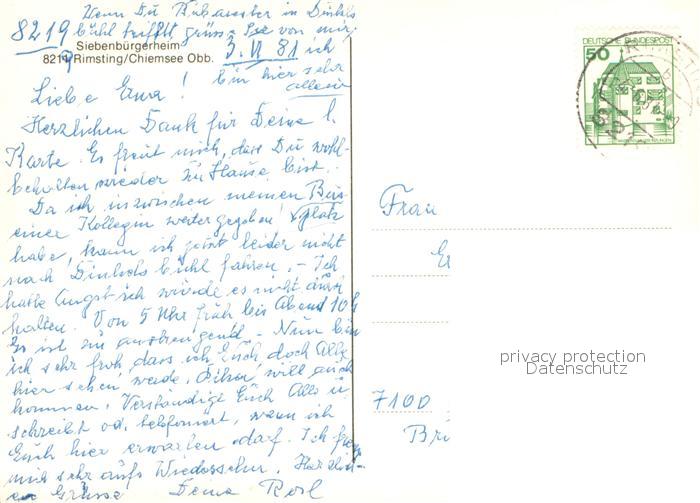 Wenn Du in Dinkels
bühl triffst, grüsse Sie von mir,
8219
Siebenbürgerheim
8219 Rimsting/Chiemsee Obb.
3. VI 81 ich
bin hier sehr
allein
Liebe Erna!
Herzlichen Dank für Deine l.
Karte. Es freut mich, dass Du wohl-
behalten wieder zu Hause bist.
Da ich inzwischen meinen Bus
platz
einer Kollegin weiter gegeben
habe, kann ich jetzt leider nicht
nach Dinkelsbühl fahren. - Ich
hatte Angst ich würde es nicht durch
halten. Von 5 Uhr früh bis Abend 10 h
Es ist zu anstrengend - Nun bin
ich sehr froh, dass ich Euch doch Alle
hier sehen werde, will auch
kommen. Verständigt Euch Alle u.
schreibt od. telefoniert, wann ich
Euch hier erwarten darf. Ich freu
mich sehr aufs Wiedersehn. Herzlich-
en Grüsse Deine Rosl
DEUTSCHE BUNDESPOST
50
Frau
7100
privacy protection
Datenschutz